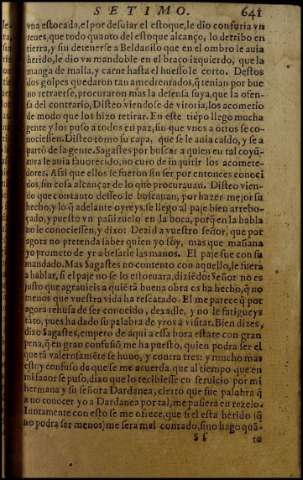 SETIMO. 641
vna estocada, el por desuiar el estoque, le dio con furia vn
reues, que todo quanto del estoque alcanço, lo derribo en
tierra, y sin detenerse a Beldaniso que en el ombro le auia
herido, le dio vn mandoble en el braço izquierdo, que la
manga de malla, y carne hasta el huesso le corto. Destos
dos golpes quedaron tan amedrentados, q̃ tenian por bue
no retraerse, procuraron mas la defensa suya, que la ofen-
sa del contrario, Disteo viendose de vitoria, los acometio
de modo que los hizo retirar. En este tiẽpo llego mucha
gente y los puso a todos en paz, sin que vnos a otros se co-
nociessen. Disteo tomo su capa, que se le auia caido, y se a
parto de la gente. Sagastes por buscar a quien en tal coyũ-
tura le auia fauorecido, no curo de inquirir los acomete-
dores. Assi que ellos se fueron sin ser por entonces conoci
dos, sin cosa alcançar de lo que procurauan. Disteo vien-
do que con tanto desseo le buscauan, por hazer mejor su
hecho, y lo de adelante oyreys, se llego al paje bien arrebo-
çado, y puesto vn pañizuelo en la boca, porq̃ en la habla
no le conociessen, y dixo: Dezid a vuestro señor, que por
agora no pretenda saber quien yo soy, mas que mañana
yo prometo de yr a besarle las manos. El paje fue con su
mandado. Mas Sagastes no contento con aquello, le fuera
a hablar, si el paje no se lo estoruara, diziẽdo: Señor no es
justo que agrauieis a quiẽ tã buena obra os ha hecho, q̃ no
menos que vuestra vida ha rescatado. El me parece q̃ por
agora rehusa de ser conocido, dexadle, y no le fatigueys
tãto, pues ha dado su palabra de yros a visitar. Bien dizes,
dixo Sagastes, empero de aqui a essa hora estare con gran
pena, q̃ en gran confusiõ me ha puesto, quien podra ser el
que tã valerosamẽte se huuo, y contra tres: y mucho mas
estoy confuso de que se me acuerda, que al tiempo que en
mi fauor se puso, dixo que lo recibiesse en seruicio por mi
hermana y su señora Dardanea, cierto que sus palabras q̃
a no conocer yo a Dardanea por tal, me pusiera en rezelo.
Iuntamente con esto se me ofrece, que si el esta herido (q̃
no podra ser menos) me sera mal contado, sino hago quã-
Sſ to